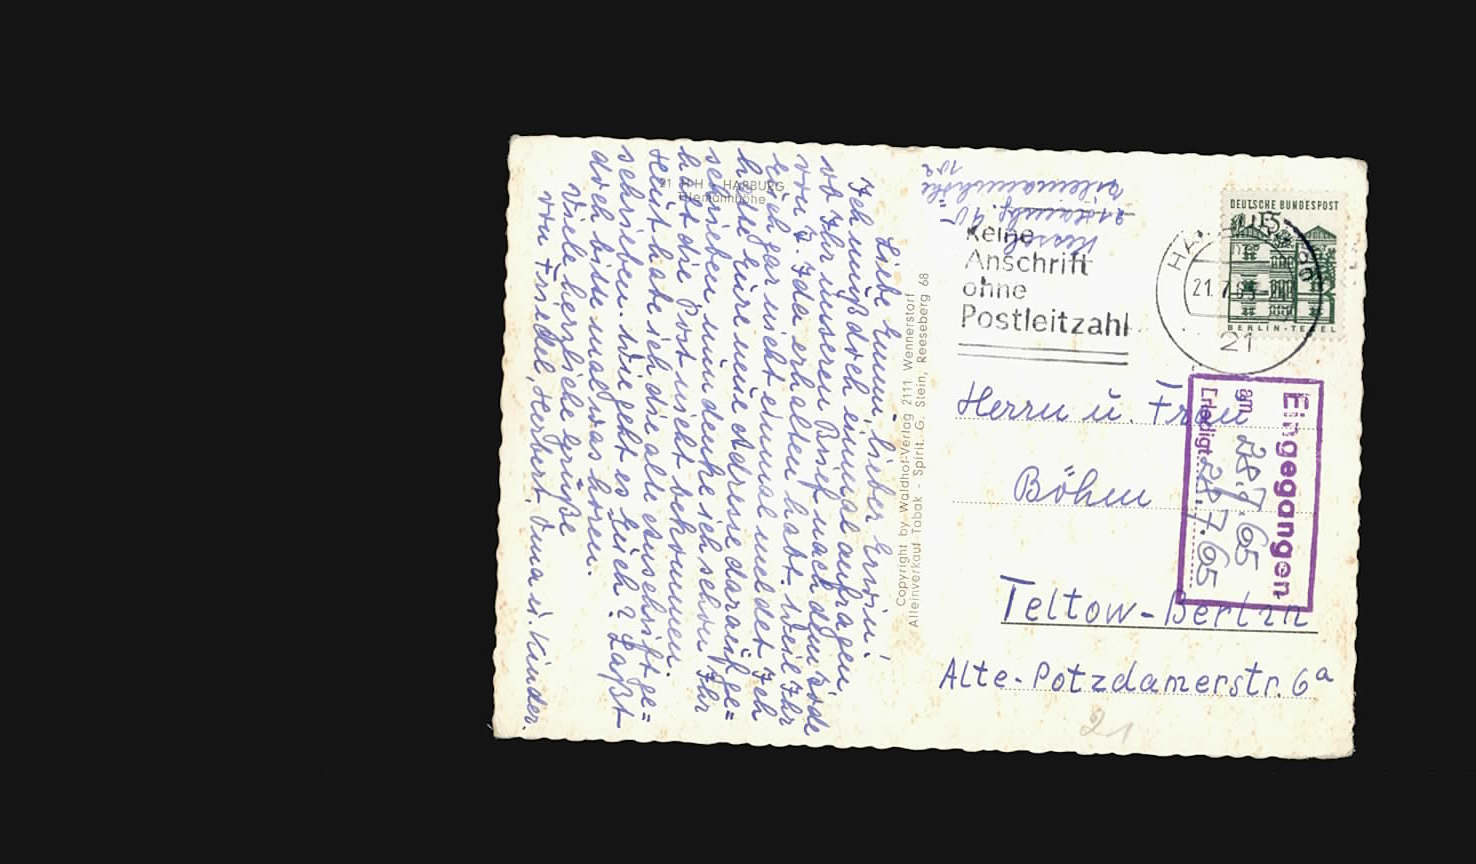 21 HH - HARBURG
Tilemannhöhe
Liebe Emmi, lieber Erwin!
Ich muß doch einmal anfragen,
ob Ihr unseren Brief nach dem Tode
von J. Ida erhalten habt. Weil Ihr
Euch gar nicht einmal meldet. Ich
hatte Eure neue Adresse darauf ge=
schrieben nun denke ich schon Ihr
habt die Post nicht bekommen.
Heut habe ich die alte Anschrift ge=
schrieben. Wie geht es Euch? Laßt
doch bitte mal was hören.
Viele herzliche Grüße
von Friedel, Herbert, Oma u. Kinder.
Copyright by Waldhof-Verlag 2111 Wennerstorf
Alleinverkauf Tabak - Spirit. G. Stein, Reeseberg 68
Hamb. 90
Tilemannhöhe
Keine
Anschrift
ohne
Postleitzahl
21.7.65
21
DEUTSCHE BUNDESPOST
BERLIN-TEGEL
Eingegangen
am 28.7.65
Erledigt: 28.7.65
Herrn u. Frau
Böhm
Teltow-Berlin
Alte-Potzdamerstr. 6a
21